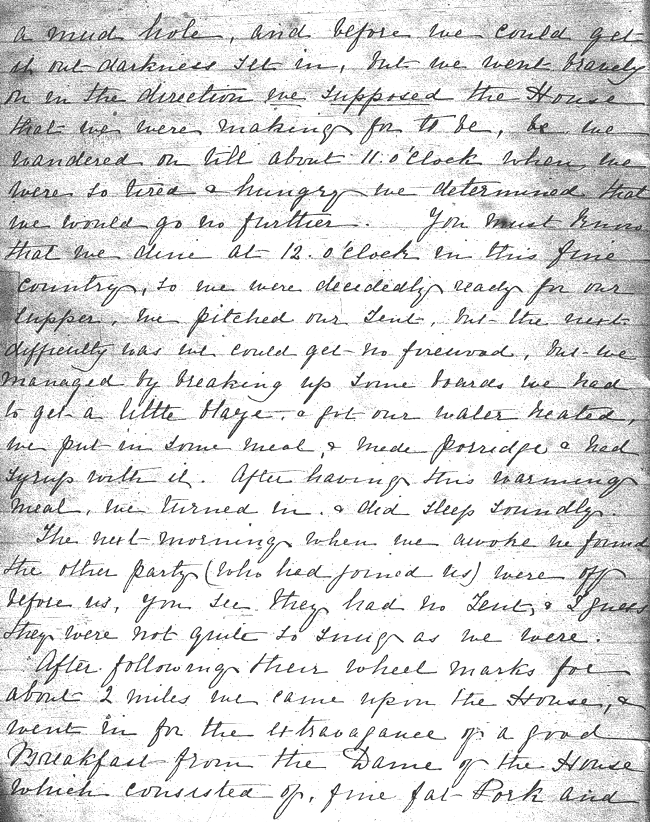 a mud hole, and before we could get
it out darkness set in, but we went bravely
on in the direction we supposed the House
that we were making for to be, be we
wandered on till about 11. o'Clock when we
were so tired & hungry we determined that
we would go no further. You must know
that we dine at 12. o'clock in this fine
country, so we were decidedly ready for our
supper, we pitched our Tent, but the next
difficulty was we could get no firewood, but we
managed by breaking up some boards we had
to get a little blaze, & got our water heated,
we put in some meal, & made porridge & had
syrup with it. After having this warming
meal, we turned in & did sleep soundly.
The next morning when we awoke we found
the other party (who had joined us) were off
before us, you see they had no Tent, & I guess
they were not quite so snug as we were.
After following their wheel marks for
about 2 miles we came upon the House, &
went in for the extravagance of a good
Breakfast from the Dame of the House
which consisted of, fine fat Pork and